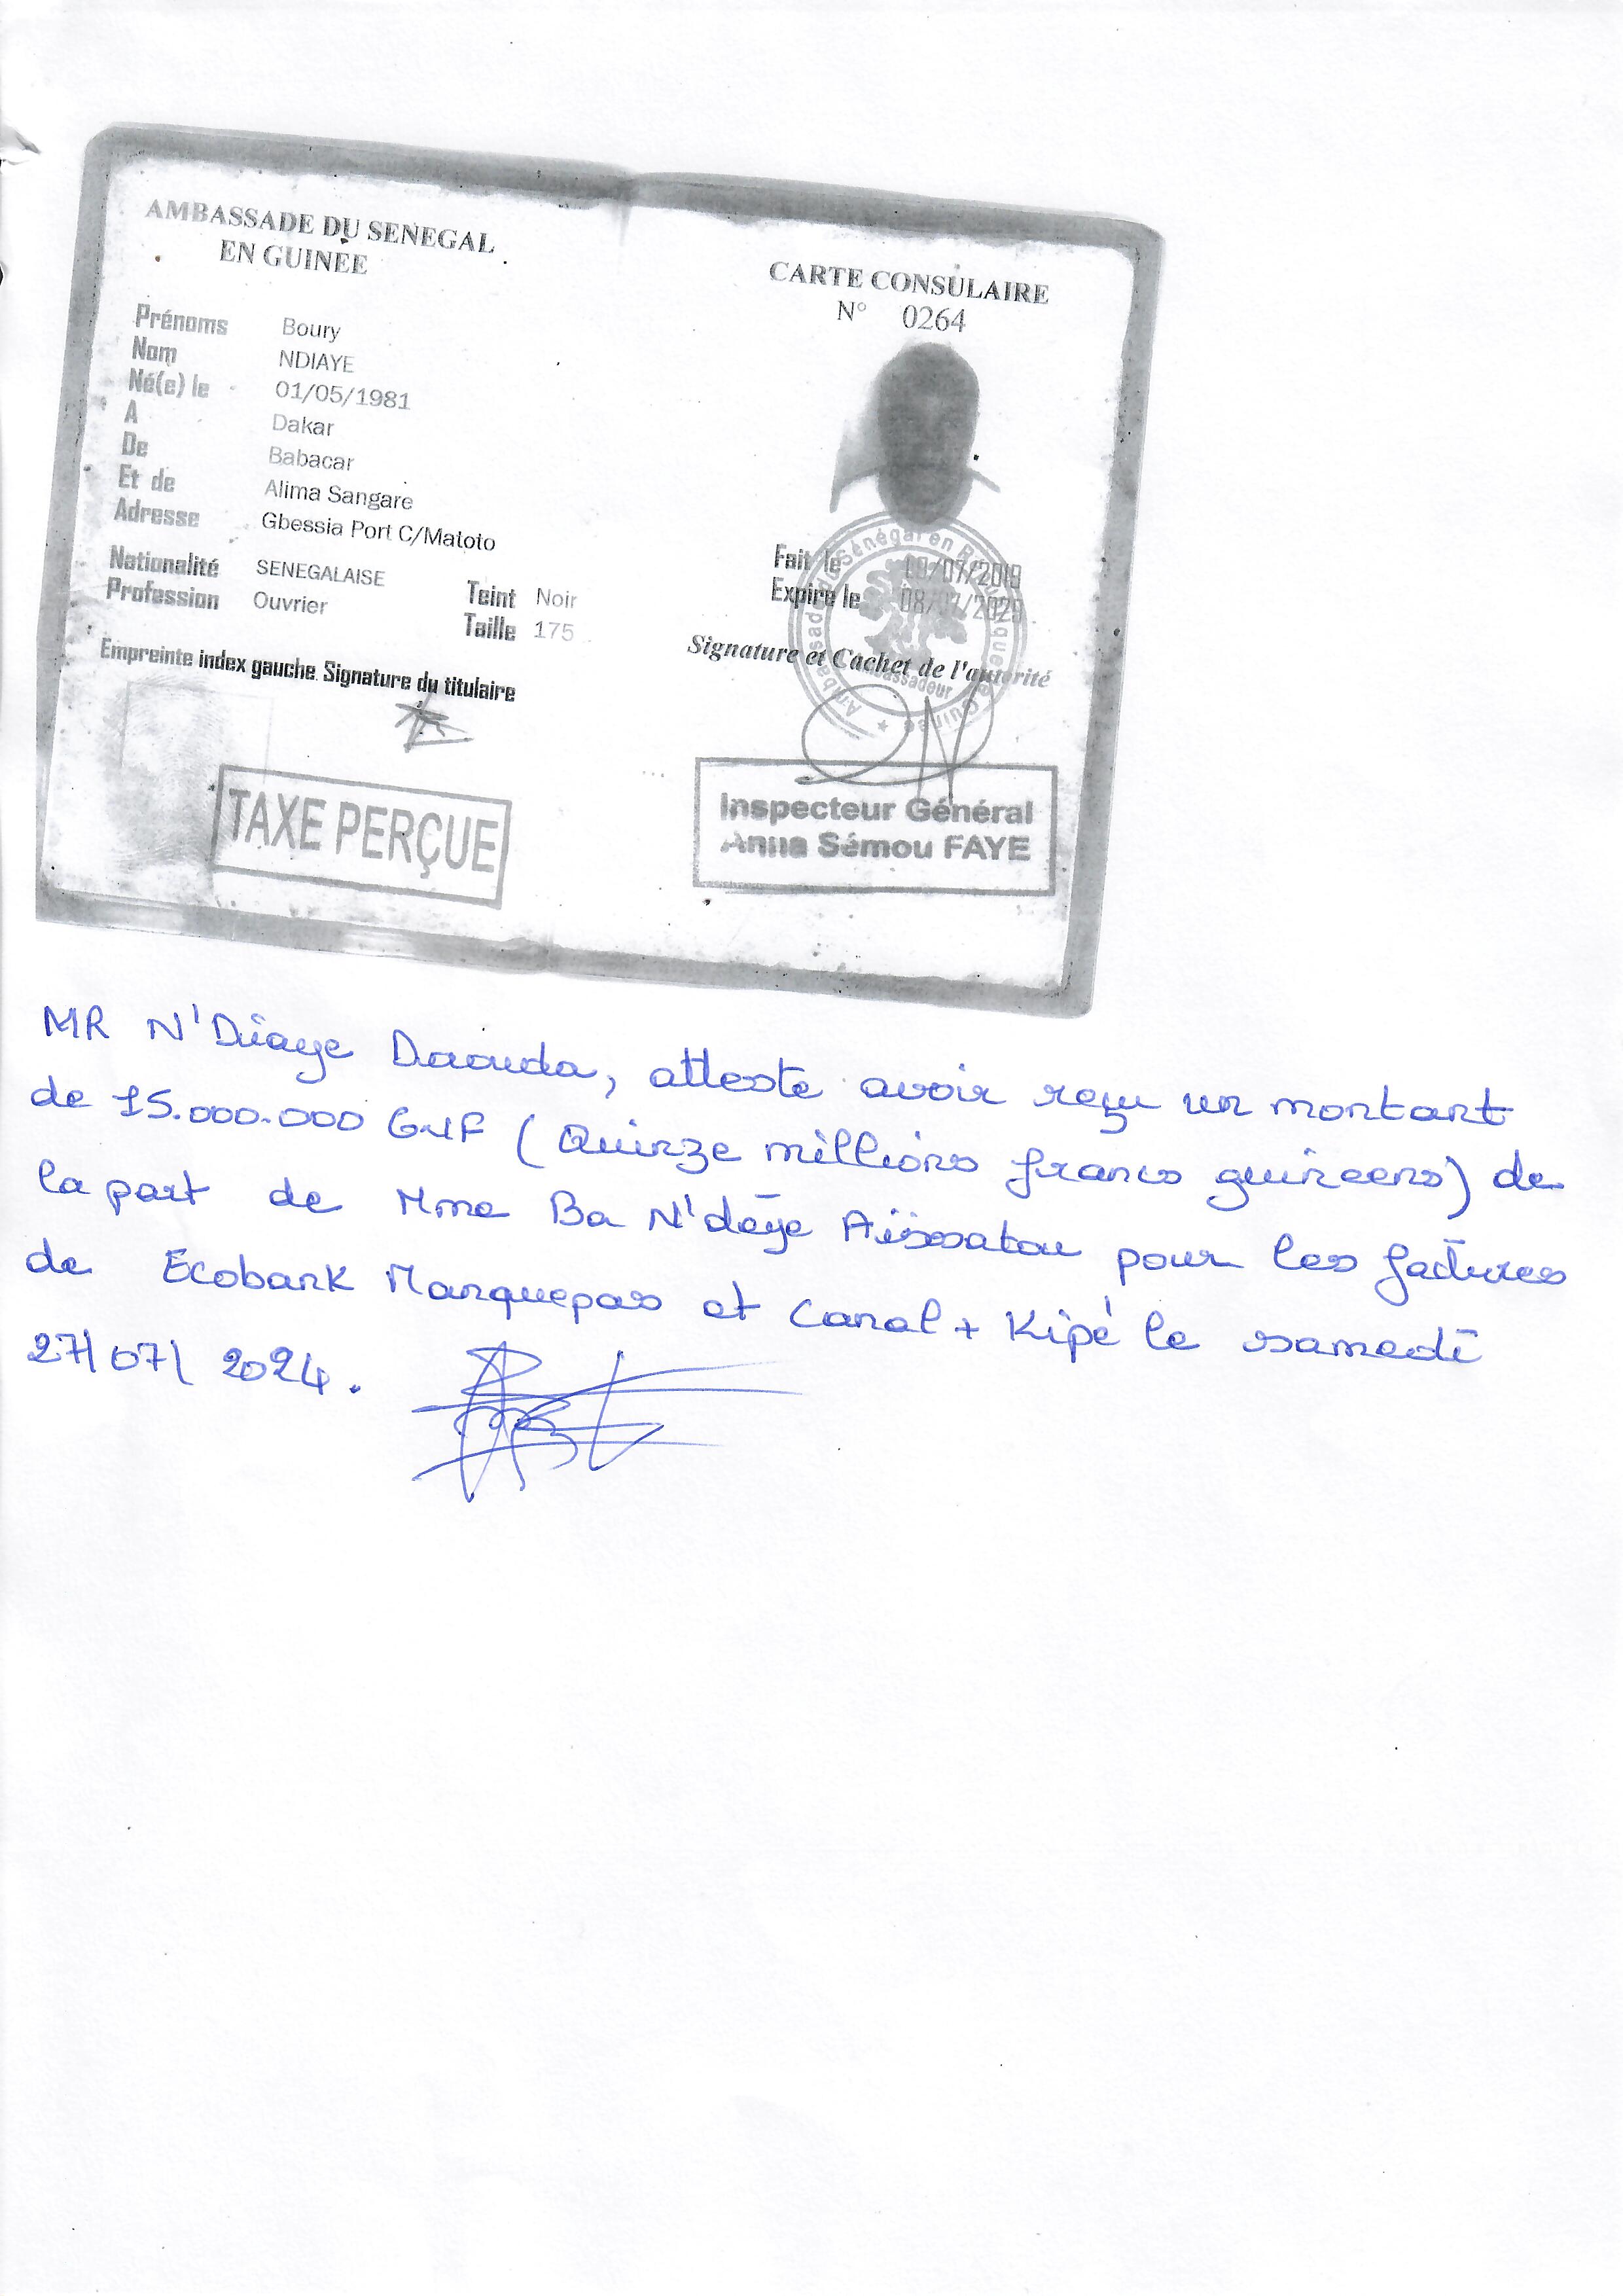 AMBASSADE DU SENEGAL
EN GUINÉE
Prénoms Boury
Nom NDIAYE
Né(e) le 01/05/1981
A Dakar
De Babacar
Et de Alima Sangare
Adresse Gbessia Port C/Matoto
Nationalité SENEGALAISE
Profession Ouvrier
Teint Noir
Taille 175
Empreinte index gauche. Signature du titulaire
TAXE PERÇUE
CARTE CONSULAIRE
N° 0264
Fait le /07/2019
Expire le 08/07/
Signature et Cachet de l'autorité
Ambassade du Sénégal en République de Guinée
Ambassadeur
Inspecteur Général
Anna Sémou FAYE
MR N'Diaye Daouda, atteste avoir reçu un montant
de 15.000.000 GNF (Quinze millions francs guineens) de
la part de Mme Ba N'dèye Aïssatou pour les factures
de Ecobank Manquepas et Canal + Kipé le samedi
27/07/2024.